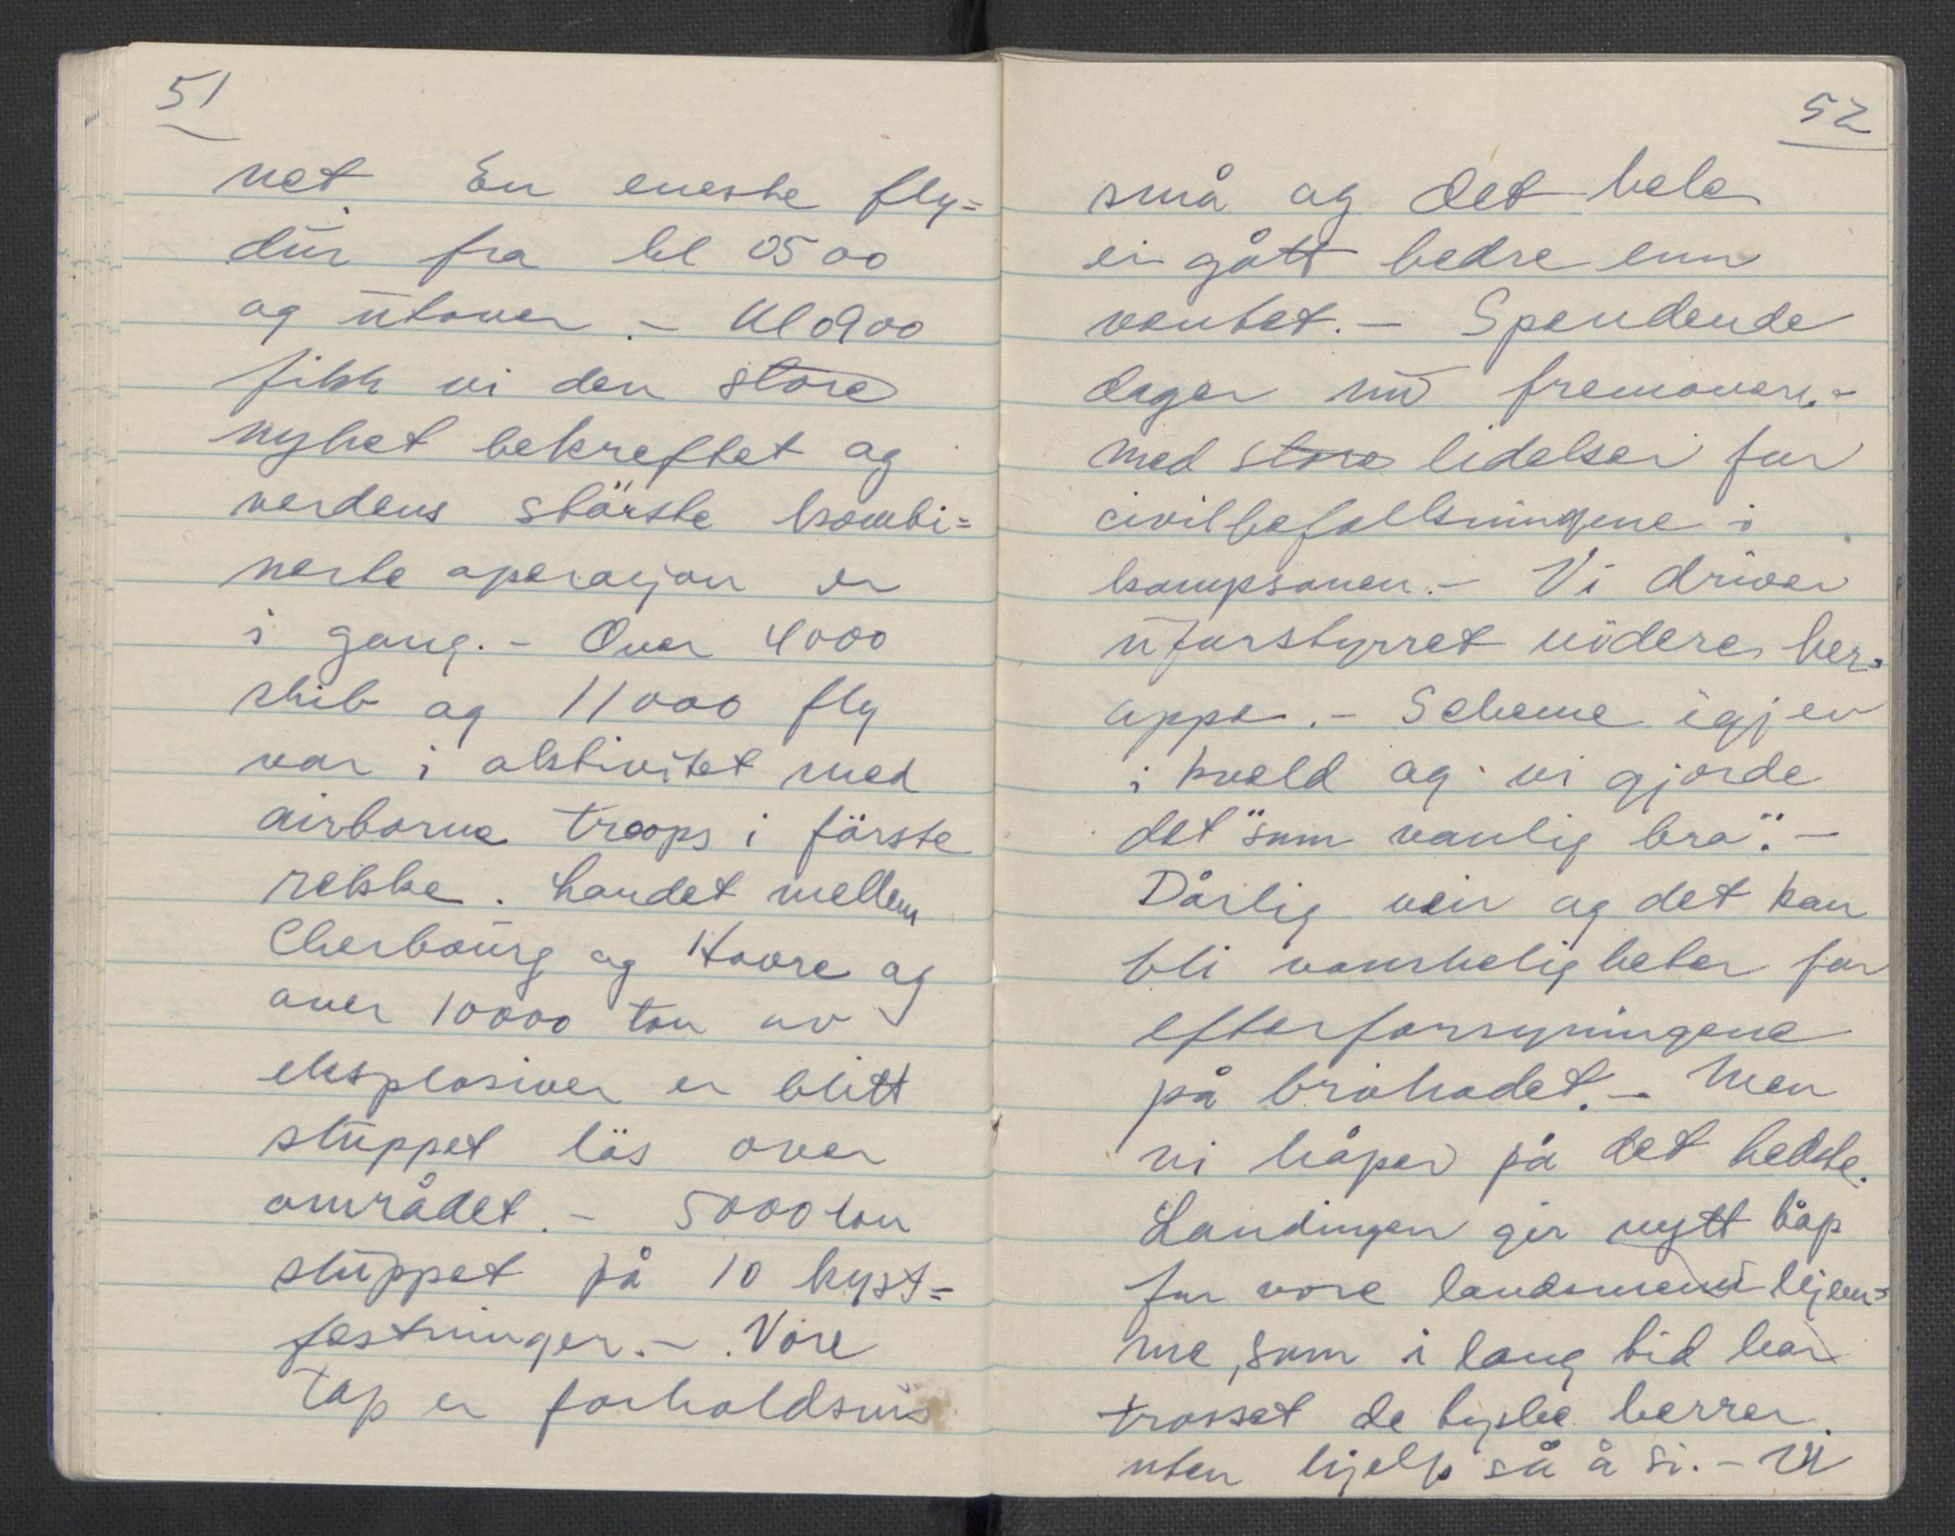 51
net. En eneste fly=
dur fra kl 0500
og utover. – Kl 0900
fikk vi den store
nyhet bekreftet og
verdens störste kombi=
nerte operasjon er
i gang. – Over 4000
skib og 11000 fly
var i aktivitet med
airborne troops i förste
rekke. Landet mellem
Cherbourg og Havre og
over 10000 ton av
eksplosiver er blitt
sluppet lös over
området. – 5000 ton
sluppet på 10 kyst=
festninger. – Våre
tap er forholdsvis
52
små og det hele
er gått bedre enn
ventet. – Spendende
dager nu fremover. –
med store lidelser for
civilbefolkningene i
kampsonen. – Vi driver
uforstyrret videre her=
oppe. – Scheme igjen
i kveld og vi gjorde
det "som vanlig bra". –
Dårlig veir og det kan
bli vanskeligheter for
efterforsyningene
på brohodet. – Men
vi håper på det bedste.
Landingen gir nytt håp
for vore landsmenn hjem=
me, som i lang tid har
trosset de tyske herrer
uten hjelp så å si. – Vi